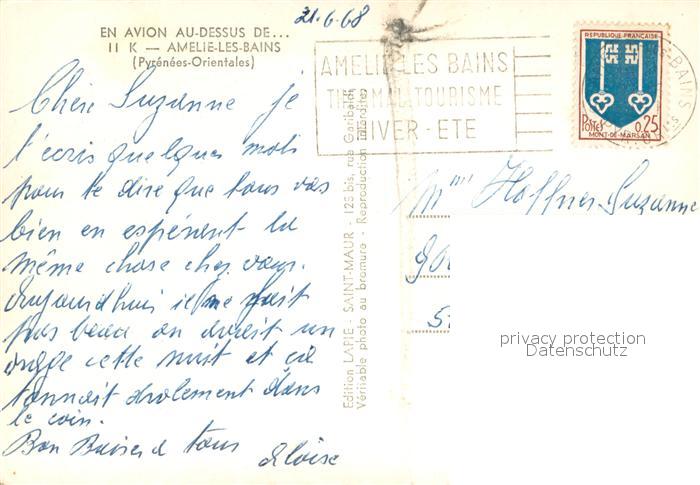 21.6.68
EN AVION AU-DESSUS DE...
11 K — AMELIE-LES-BAINS
(Pyrénées-Orientales)
Chère Suzanne je
t'écris quelques mots
pour te dire que tous vas
bien en espérent la
même chose chez vous.
Aujourdhuis il ne fait
pas beau on avait un
orage cette nuit et ça
tonnait drolement dans
le coin.
Bon Baisers à tous
Eloise
Edition LAPIE - SAINT-MAUR - 123 bis, rue Garibaldi
Véritable photo au bromure - Reproduction interdite
AMELIE LES BAINS
THERMAL TOURISME
HIVER - ETE
REPUBLIQUE FRANÇAISE
Postes 0,25
MONT-DE-MARSAN
BAINS
Mme Hoffner Suzanne
privacy protection
Datenschutz